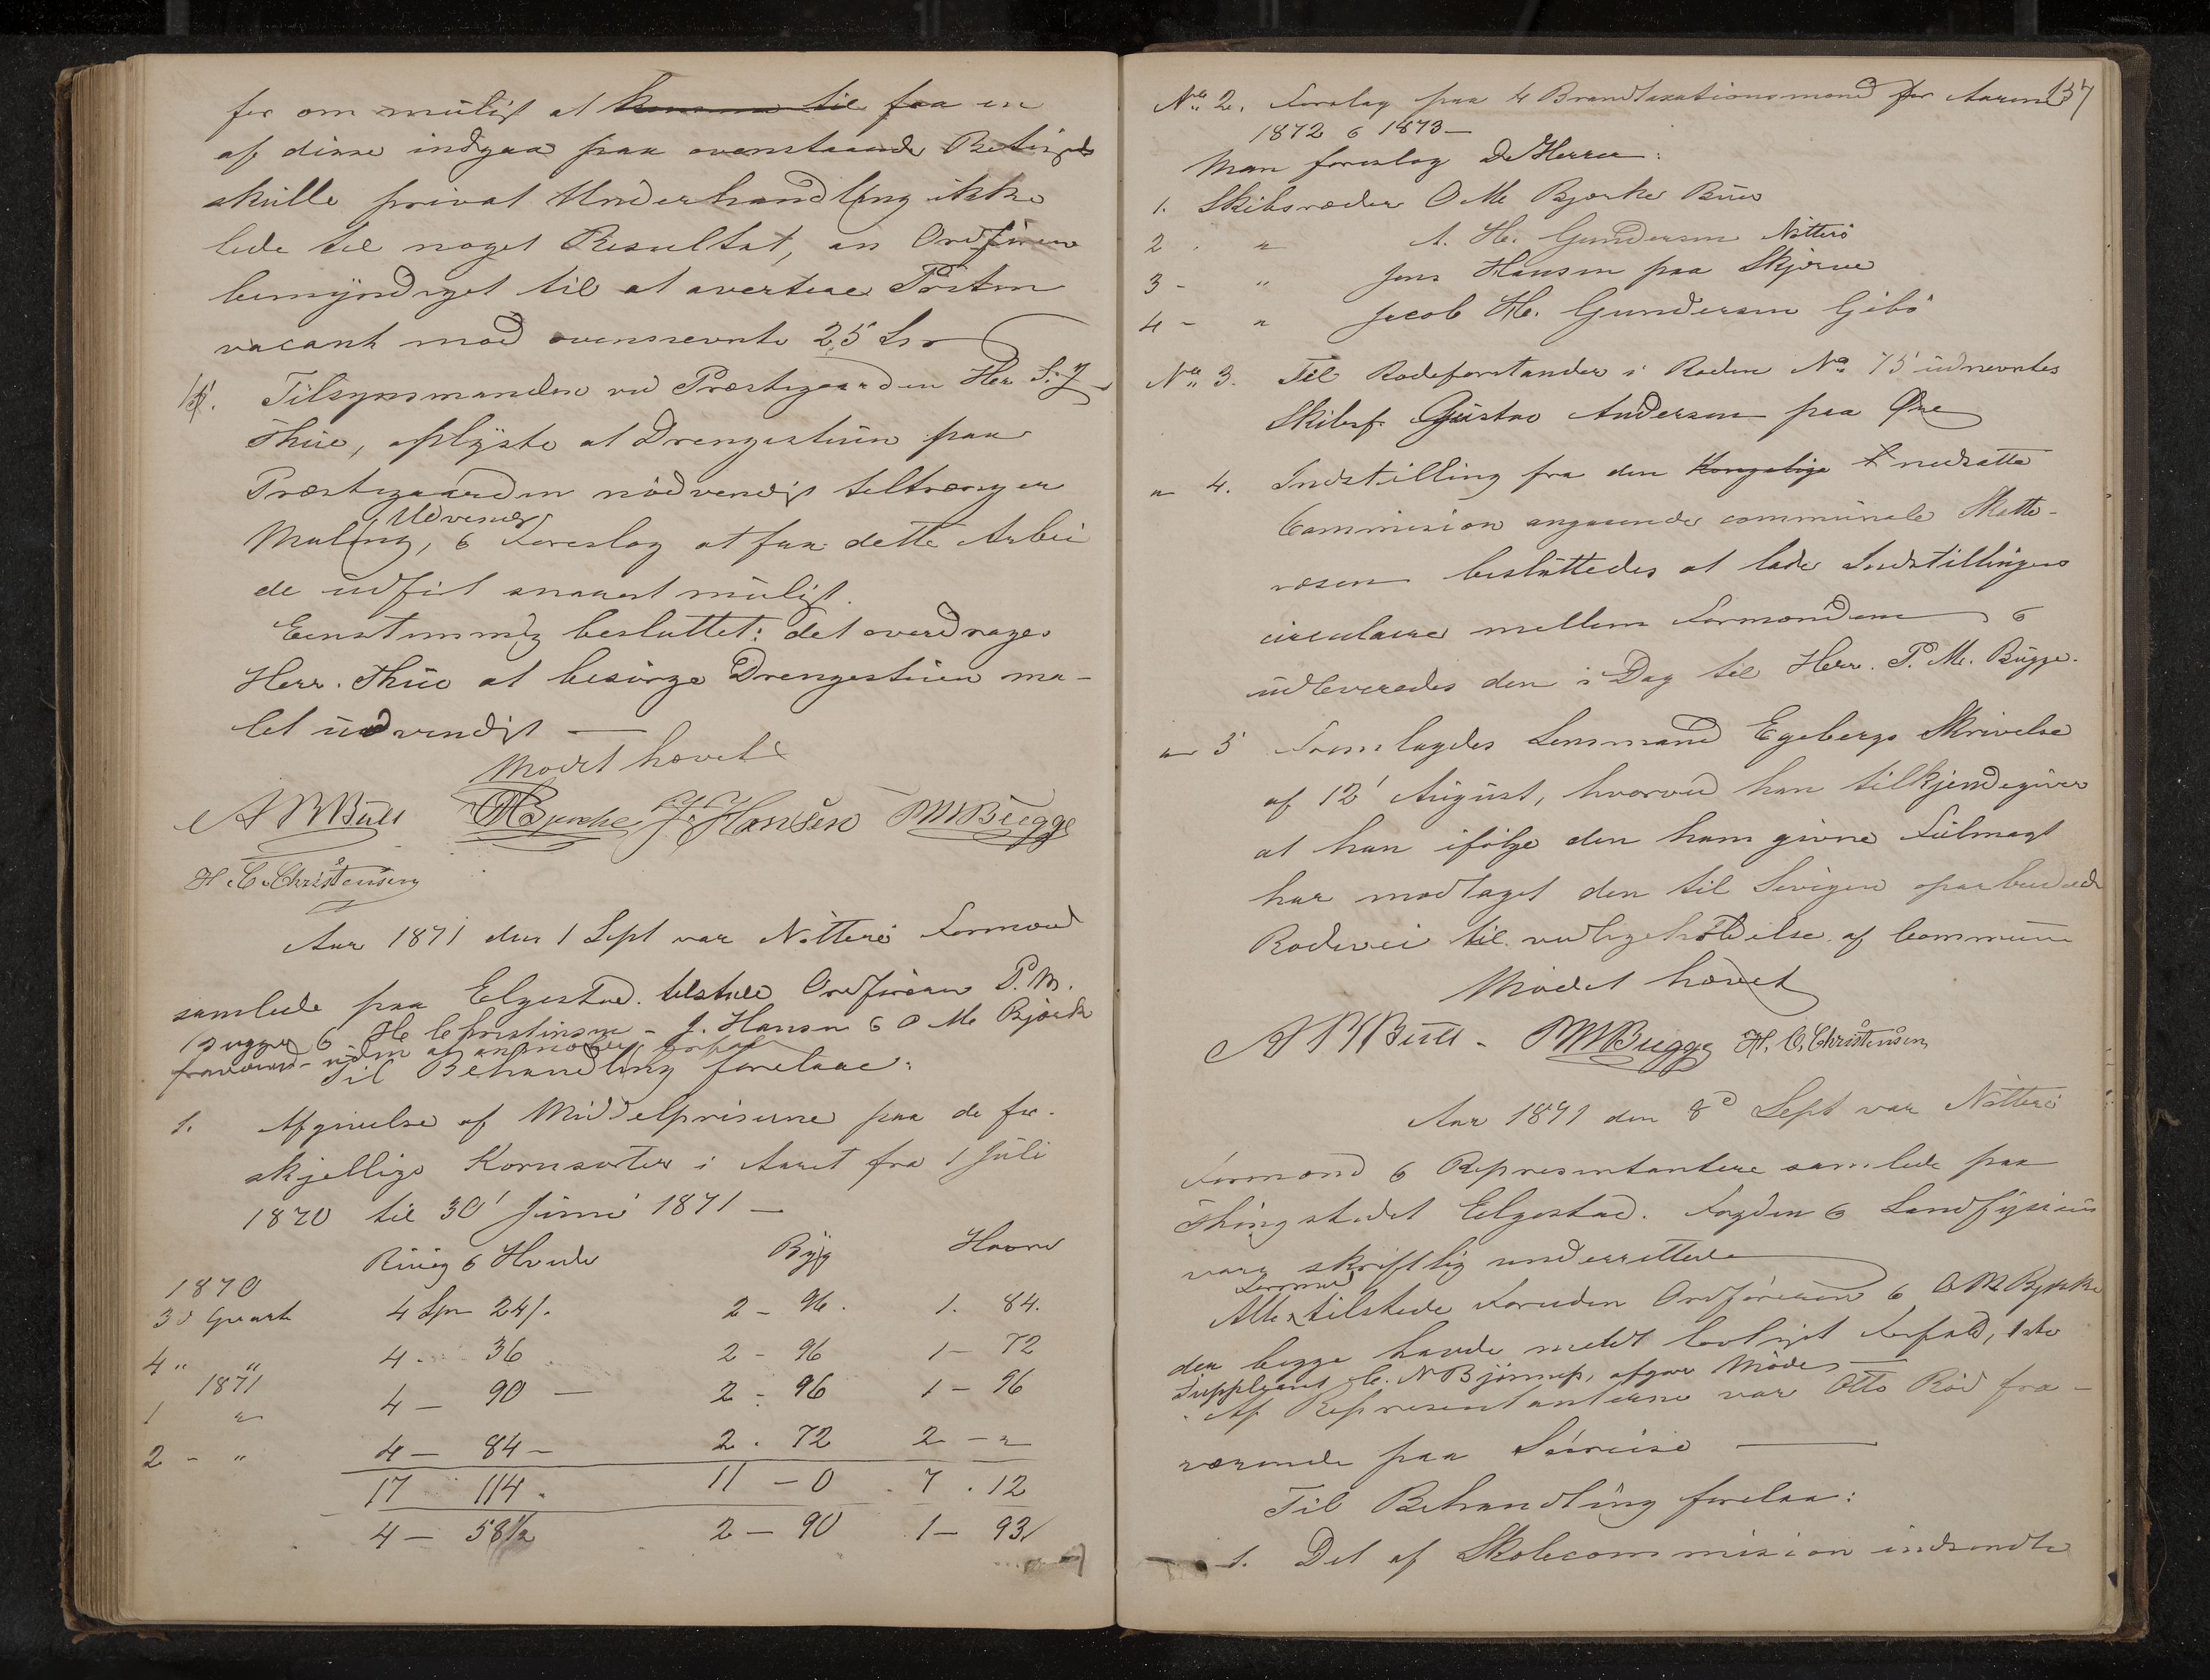 for om muligt at komme til faa en
af disse indgaa paa ovenstaaende Beting
skulle privat Underhandling ikke
lede til noget Resultat, an Ordføren
bemyndiget til at avertere Posten
vacant mod ovennevnte 25 
Tilsynsmanden ved Præstegaarden Her S. J
Thue, oplyste at Drengestuen paa
Præstegaarden nødvendigt tiltrænger
Udvendig
Maling, & Foreslog at faa dette Arbei
de udført snarest muligt.
Eenstemmig besluttet: det overdrages
Herr. Thue at besørge Drengestuen ma-
let udvendigt —
Mødet hævet
A B Bull OM Bjerke J. Hansen PM Bugge
H. C. Christensen
Aar 1871 den 1 Sept var Nøtterø Formænd
samlede paa Elgestad. tilstede Ordføreren P. M.
Bugge & H C Christensen - J. Hansen & O M Bjerke
fraværend- uden at anmelde forfald
Til Behandling forelaae:
1. Afgivelse af Middelpriserne paa de for-
skjellige Kornsorter i Aaret fra 1 Juli
1870 til 30' Juni 1871 —
Rug & Hvede Byg Havre
1870
3d Quart 4 Spr 24/. 2 - 96. 1. 84.
4 " " 4 - 36 2 - 96 1 - 72
1871
1 " 4 - 90 — 2 - 96 1 - 96
2 - " 4 - 84 - 2. 72 2 - "
17 114. 11 - 0 7. 12
4 - 58 1/2 2 - 90 1 - 93
137
No 2. Forslag paa 4 Brandtaxationsmænd for Aarene
1872 & 1873 —
Man foreslog D'Herrer:
1. Skibsræder O M Bjerke Bue
2. " A. H. Gundersen Nøtterø
3 - " Jens Hansen paa Skjerve
4 - " Jacob H. Gundersen Gibø
No 3. Til Rodeforstander i Roden No 15 udnevntes
Skibsf. Gustav Andersen paa Øre
" 4. Indstilling fra den Kongelige nedsatte
Commision angaaende communale Skatte-
væsen besluttedes at lade Indstillingen
circulaire mellem Formændene &
udleveredes den i Dag til Herr. P. M. Bugge.
" 5 Fremlagdes Lensmand Egebergs Skrivelse
af 12' August, hvorved han tilkjendegiver
at han ifølge den ham givne Fulmagt
har modtaget den til oparbeidede
Rodevei til vedligeholdelse af Commune
Mødet hævet
A B Bull - PM Bugge H. C. Christensen
Aar 1871 den 8d Sept var Nøtterø
Formænd & Representantere samlede paa
Thingstedet Elgestad. Fogden & Landfysicus
vare skriftlig underrettede
Formænd
Alle tilstede foruden Ordføreren & O M Bjerke
der begge havde meldt lovligt Forfald, 1ste
Suppleant C. N Bjørnup, afgav Møde —
Af Representanterne var Otto Rød fra-
værende paa Søreise —
Til Behandling forelaa:
1. Det af Skolecommision indsendte